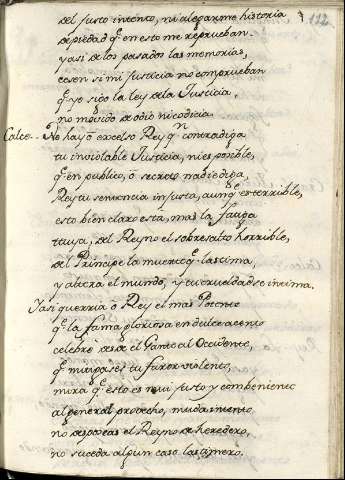 112
del justo intento, ni alegarme historia
de piedad q̃ en esto me reprueban
y asi de los pasados las memorias,
cesen si mi justicia no comprueban
q̃ yo sigo la ley de la Justicia,
no movido de odio ni codicia.
Calce.. No hay ó excelso Rey qⁿ contradiga
tu inviolable Justicia, ni es posible,
q̃ en publico, ó secreto nadie diga,
Rey tu sentencia injusta, aunq̃ es terrible,
esto bien claro esta, mas la fatiga
tuya, del Reyno el sobresalto horrible,
del Principe la muerte q̃ lastima,
y altera el mundo, y tu crueldad se intima.
Y asi querria ó Rey el mas Potente
q̃ la fama gloriosa en dulce acento
celebre desde el Gante al Occidente,
q̃ mitigases tu furor violento,
mira q̃ esto es mui justo y combeniente
al general provecho, muda intento,
no desposeas el Reyno de heredero,
no suceda algun caso lastimero.